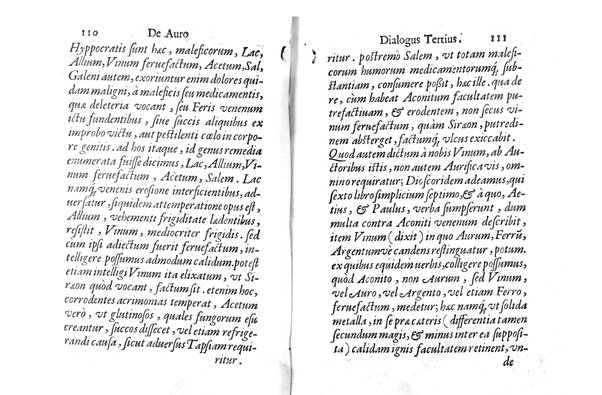 110 De Auro
Hyppocratis sunt hæc, maleficorum, Lac,
Allium, Vinum feruefactum, Acetum, Sal,
Galeni autem, exoriuntur enim dolores qui-
dam maligni, à maleficis seu medicamentis,
quæ deleteria vocant, seu Feris venenum
ictu fundentibus, siue succis aliquibus ex
improbo victu, aut pestilenti cœlo in corpo-
re genitis. ad hos itaque, id genus remedia
enumerata fuisse dicimus, Lac, Allium, Vi-
num feruefactum, Acetum, Salem. Lac
namq́, venenis erosione interficientibus, ad-
uersatur, siquidem attemperatione opus est,
Allium, vehementi frigiditate lædentibus,
resistit, Vinum, mediocriter frigidis. sed
cum ipsi adiectum fuerit feruefactum, in-
telligere possumus admodum calidum. potest
etiam intelligi Vinum ita elixatum, vt Si-
ræon quòd vocant, factum sit. etenim hoc,
corrodentes acrimonias temperat, Acetum
verò, vt glutinosos, quales fungorum esu
creantur, succos dissecet, vel etiam refrige-
randi causa, sicut aduersus Tapsiam requi-
ritur.
Dialogus Tertius. 111
ritur. postremò Salem, vt totam malefi-
corum humorum medicamentorumq́; sub-
stantiam, consumere possit, hæc ille. qua de
re, cùm habeat Aconitum facultatem pu-
trefactiuam, & erodentem, non secus vi-
num feruefactum, quàm Siræon, putredi-
nem absterget, factumq́; vlcus exiccabit.
Quod autem dictum à nobis Vinum, ab Au-
ctoribus istis, non autem Aurifica vis, om-
nino requiratur; Dioscoridem adeamus, qui
sexto libro simplicium septimo, & à quo, Ae-
tius, & Paulus, verba sumpserunt, dum
multa contra Aconiti venenum describit,
item Vinum (dixit) in quo Aurum, Ferrũ,
Argentumvè candens restinguatur, potum.
ex quibus equidem uerbis, colligere possumus,
quòd Aconito, non Aurum, sed Vinum,
vel Auro, vel Argento, vel etiam Ferro,
feruefactum, medetur; hæc namq́, vt solida
metalla, in se præ cæteris (differentia tamen
secundum magis, & minus inter ea supposi-
ta) calidam ignis facultatem retinent, vn-
de